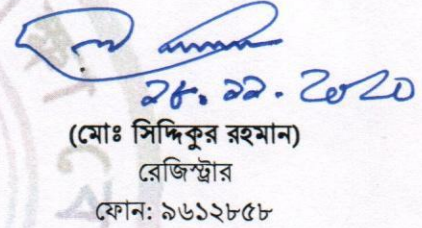 ২৮. ১১. ২০২০
(মোঃ সিদ্দিকুর রহমান)
রেজিস্ট্রার
ফোন: ৯৬১২৮৫৮